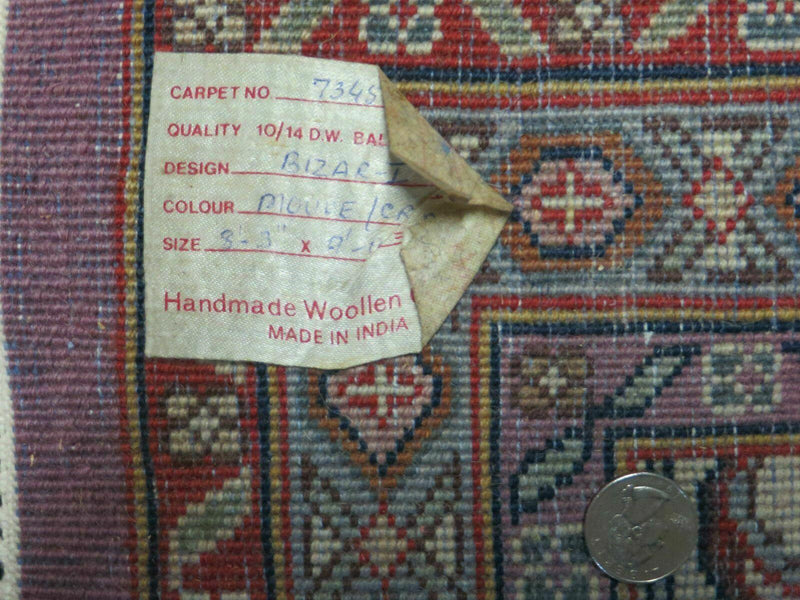 CARPET NO. 7345
QUALITY 10/14 D.W. BAL
DESIGN BIZAR-I
COLOUR
SIZE 8'-3" X
Handmade Woollen
MADE IN INDIA